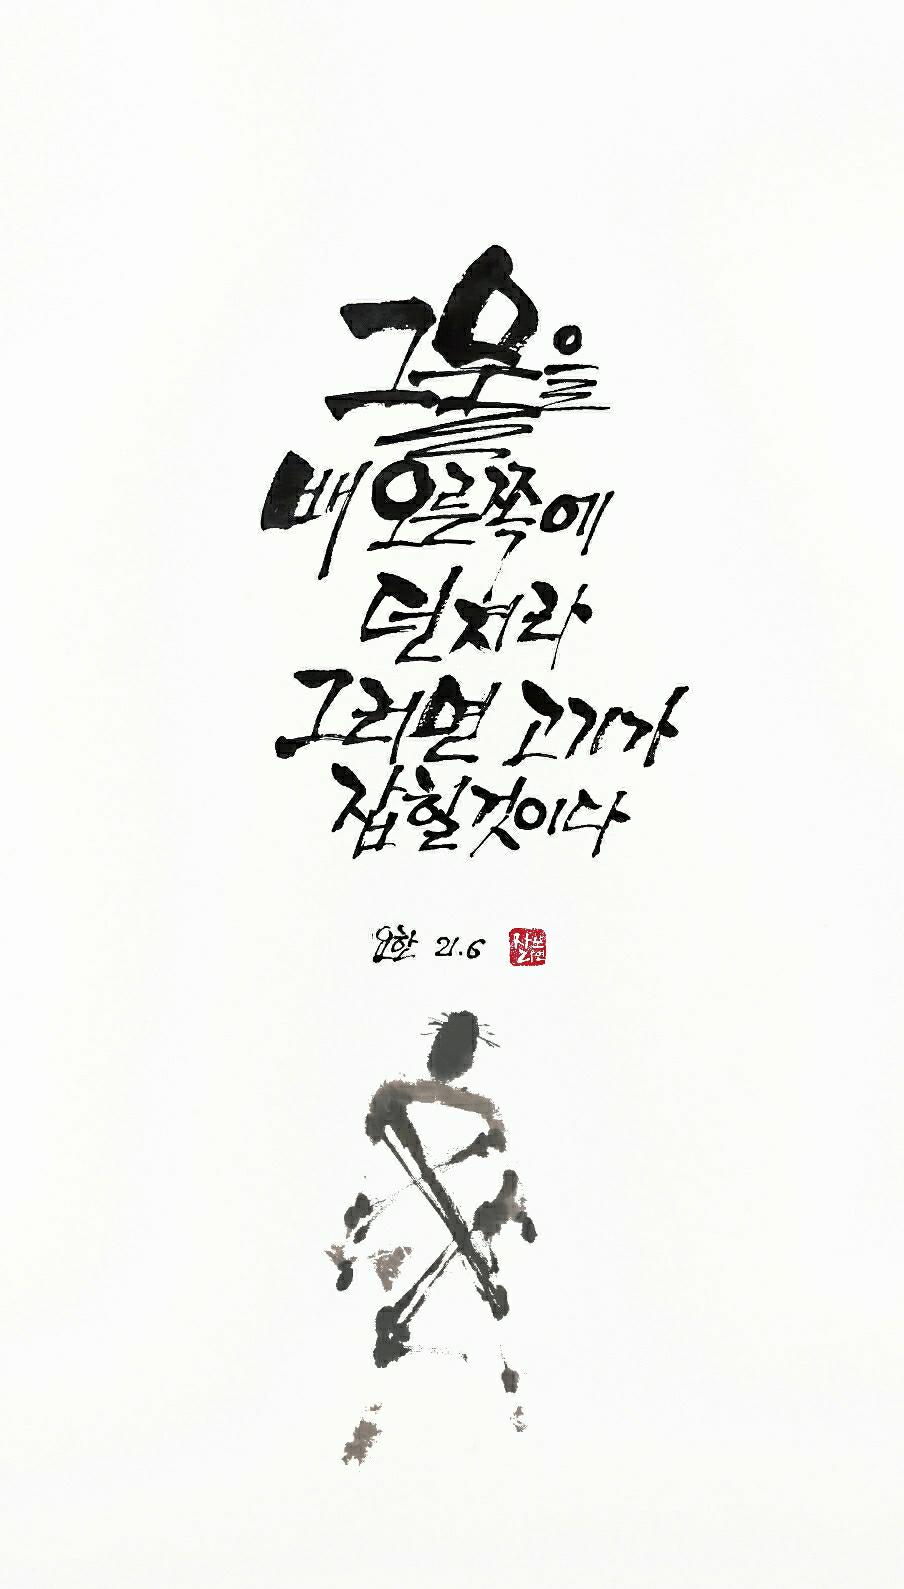 그물을
배 오른쪽에
던져라
그러면 고기가
잡힐것이다
요한 21.6